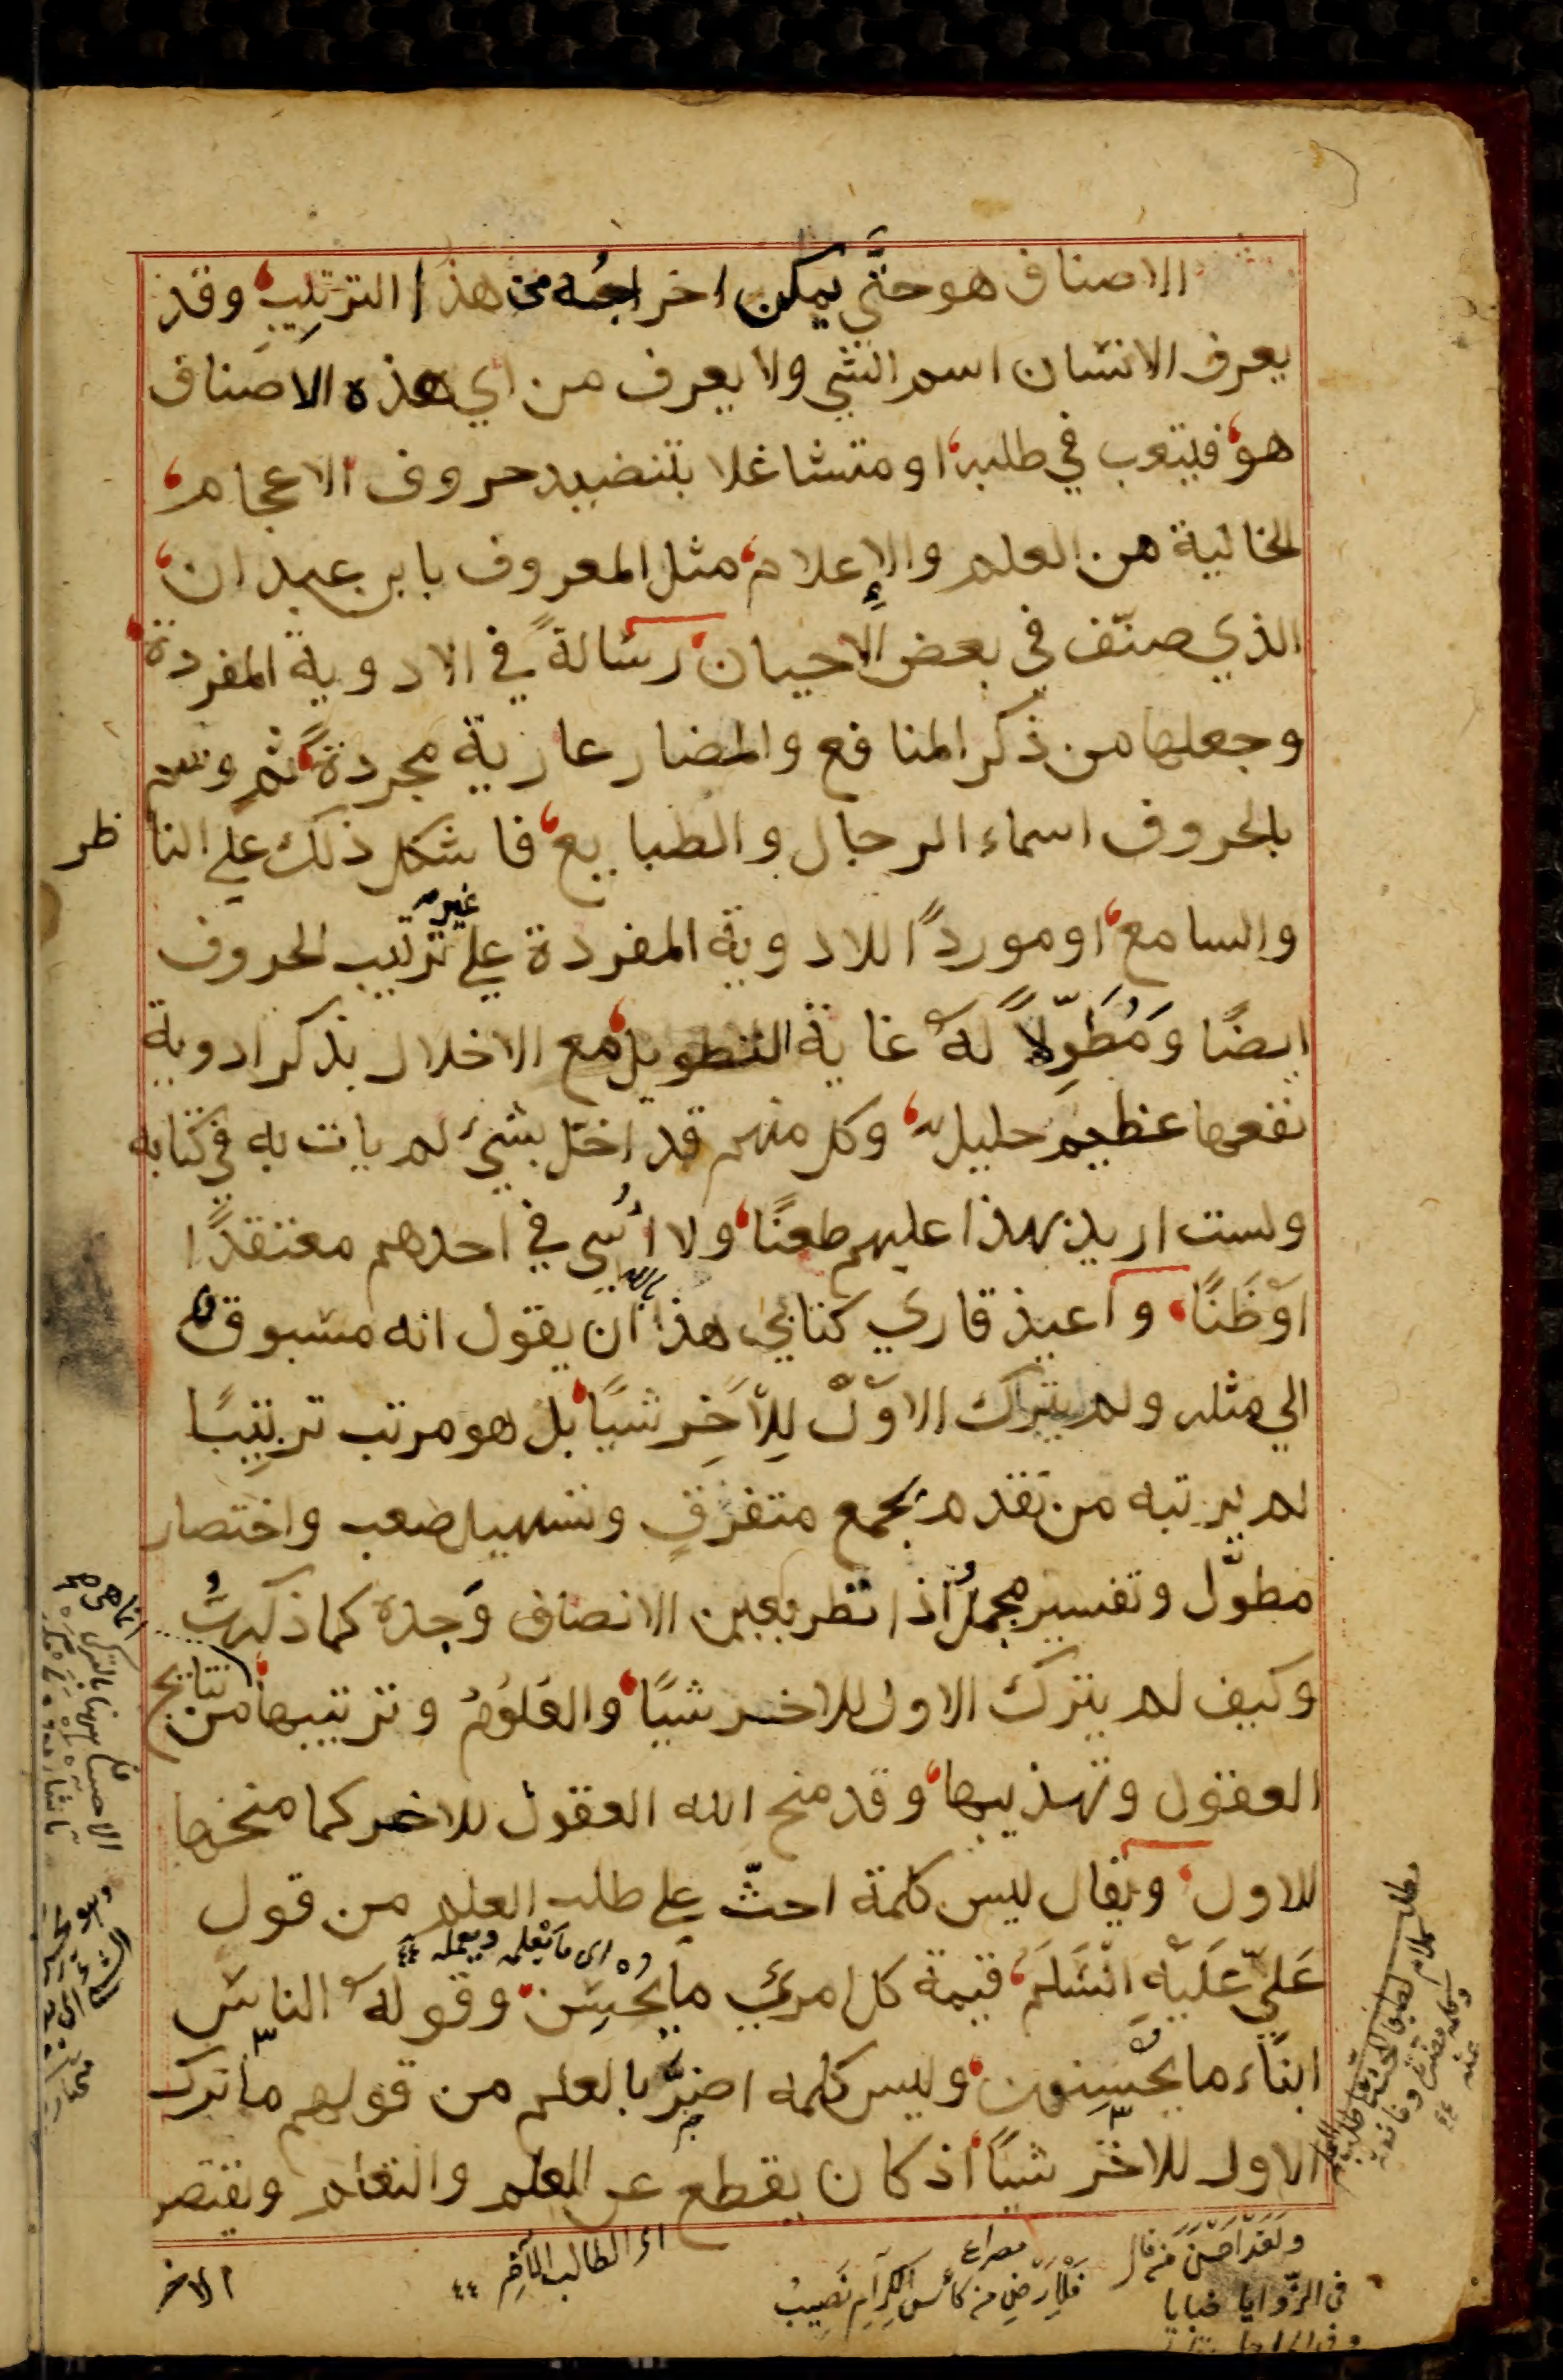 الاصناف هو حتَّي يمكن اخراجُه من هذا الترتيبِ وقد
يعرف الانسان اسم الشي ولا يعرف من اي هذه الاصناف
هو فيتعب في طلبه او متشاغلا بتنضيد حروف الاعجام
الخالية من العلم والإعلام مثل المعروف بابن عبدان
الذي صنّف في بعض الاحيان رسالةً في الادوية المفردة
وجعلها من ذكر المنافع والمضار عارية مجردةً ثم وسم
بالحروف اسماء الرجال والطبايع فاشكل ذلك علي الناظر
والسامع او موردًا للادوية المفردة علي غير ترتيب الحروف
ايضًا وَمُطَوِّلاً لهُ غاية التطويل مع الاخلال بذكر ادوية
نفعها عظيم جليل وكل منهم قد اخل بشي لم يات به في كتابه
ولست اريد بهذا عليهم طعنًا ولا اُسي في احدهم معتقدًا
اوظَنًّا واعيذ قاري كتابي هذا بالله ان يقول انه مسبوق
الي مثله ولم يترك الاوّل لِلآخِر شيًا بل هو مرتب ترتيبًا
لم يرتبه من تقدم بجمع متفرقٍ وتسهيل صعب واختصار
مطوَّل وتفسير مجمل اذا نظر بعين الانصاف وَجده كما ذكرتُ
وكيف لم يترك الاول للاخر شيًا والعلوم وترتيبها من نتايج
العقول وتهذيبها وقد منح الله العقول للاخر كما منحها
للاول ويقال ليس كلمة احثّ علي طلب العلم من قول
عَليّ عَلَيْهِ السَّلَم قيمة كل امريٍ ما يُحْسِن وقوله الناس
اي ما يعلم ويعمله
ابنَاء ما يُحْسِنون وليس كلمه اضرُّ بالعلم من قولهم ما ترك
الاول للاخر شيًا اذ كان يقطع عن العلم والتعلم ويقتصر
الاخر
اي الطالب الآخِر
ولقد احسن من قال
في الزّوايا خبايا
مصراع
فللارض من كاس الكرام نصيب